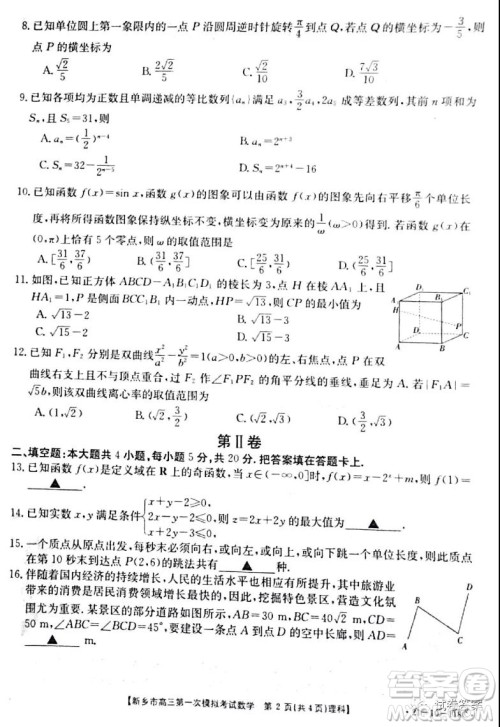 8. 已知单位圆上第一象限内的一点 P 沿圆周逆时针旋转 π/4 到点 Q, 若点 Q 的横坐标为 -3/5, 则点 P 的横坐标为
A. √2/5 B. 2√2/5 C. √2/10 D. 7√2/10
9. 已知各项均为正数且单调递减的等比数列{aₙ}满足 a₃, 3/2 a₄, 2a₅ 成等差数列, 其前 n 项和为
Sₙ, 且 S₅=31, 则
A. aₙ=(1/2)ⁿ⁻⁴ B. aₙ=2ⁿ⁺³
C. Sₙ=32-1/2ⁿ⁻⁵ D. Sₙ=2ⁿ⁺⁴-16
10. 已知函数 f(x)=sin x, 函数 g(x)的图象可以由函数 f(x)的图象先向右平移 π/6 个单位长
度, 再将所得函数图象保持纵坐标不变, 横坐标变为原来的 1/ω(ω>0)得到. 若函数 g(x)在
(0,π)上恰有 5 个零点, 则 ω 的取值范围是
A. [31/6, 37/6) B. (31/6, 37/6] C. [25/6, 31/6) D. (25/6, 31/6]
11. 如图, 已知正方体 ABCD-A₁B₁C₁D₁ 的棱长为 3, 点 H 在棱 AA₁ 上, 且
HA₁=1, P 是侧面 BCC₁B₁ 内一动点, HP=√13, 则 CP 的最小值为
A. √13-2 B. √13-3
C. √15-2 D. √15-3
12. 已知 F₁, F₂ 分别是双曲线 x²/a²-y²/b²=1(a>0,b>0)的左、右焦点, 点 P 在双
曲线右支上且不与顶点重合, 过 F₂ 作 ∠F₁PF₂ 的角平分线的垂线, 垂足为 A. 若|OA|=
√5b, 则该双曲线离心率的取值范围为
A. (1,√2) B. (1, C. (√2, D. (
第Ⅱ卷
二、填空题: 本大题共 4 小题, 每小题 5 分, 共 20 分. 把答案填在答题卡上.
13. 已知函数 f(x)是定义域在 R 上的奇函数, 当 x∈(-∞,0]时, f(x)=x-2ˣ+m, 则 f(1)=
▲ .
14. 已知实数 x, y 满足约束条件 {x+y-2≥0, x-y-2≤0, 则 z=
▲ .
15. 一个质点从原点出发, 每秒末必须向右、或向左、或向上、或向下跳一个单位长度, 则此质点
在第 10 秒末到达点 P(2,6)的跳法共有 ▲ 种.
16. 伴随着国内经济的持续增长, 人民的生活水平也相应有所提升, 其中旅游业
带来的消费是居民消费领域增长最快的, 因此挖掘特色景区, 营造文化氛
围尤为重要. 某景区的部分道路如图所示, AB=30 m, BC=20√2 m, CD=
50 m, ∠ABC=∠BCD=45°, 要建设一条从点 A 到点 D 的空中长廊, 则
AD= ▲ m.
【新乡市高三第一次模拟考试数学 第 2 页(共 4 页)理科】